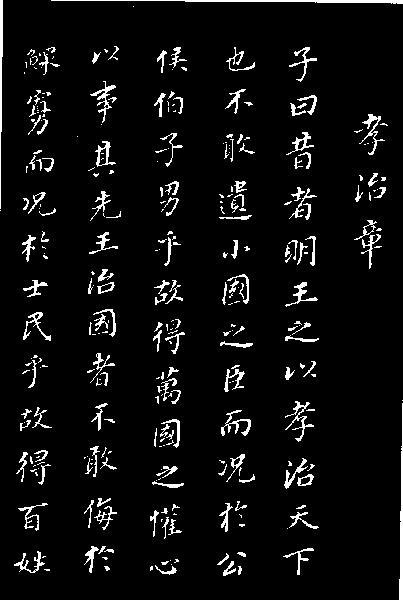 孝治章
子曰昔者明王之以孝治天下
也不敢遺小國之臣而况於公
侯伯子男乎故得萬國之懽心
以事其先王治國者不敢侮於
鰥寡而况於士民乎故得百姓